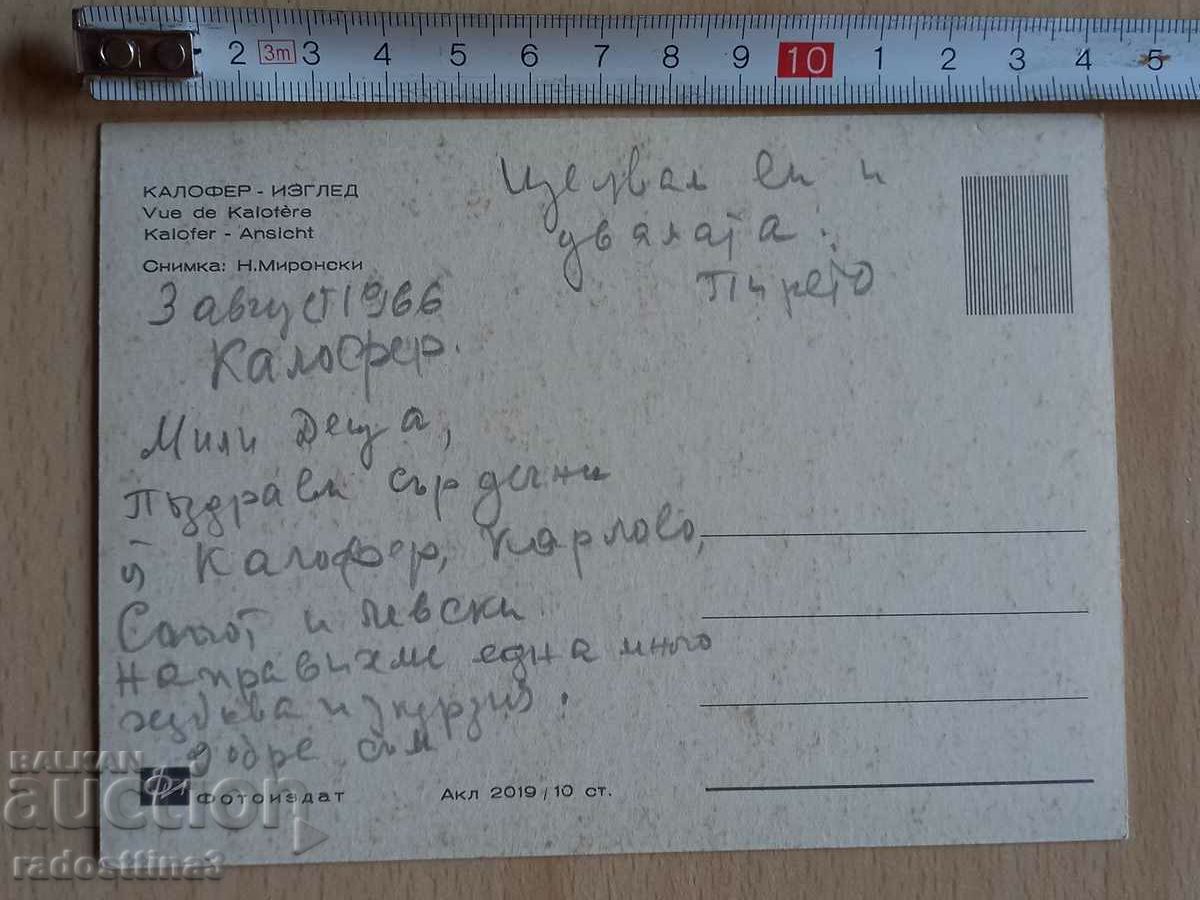 2 3m 3 4 5 6 7 8 9 10 1 2 3 4 5
КАЛОФЕР - ИЗГЛЕД
Vue de Kalofère
Kalofer - Ansicht
Снимка: Н.Миронски
Целувам ви и
двамата:
3 август 1966
Калофер.
Мили Деца,
Поздрави сърдечни
Калофер, Карлово,
Сопот и Левски
направихме една много
хубава екскурзия.
добре съм
Фотоиздат
Акл 2019/10 ст.
BALKAN
auction
radosttina3